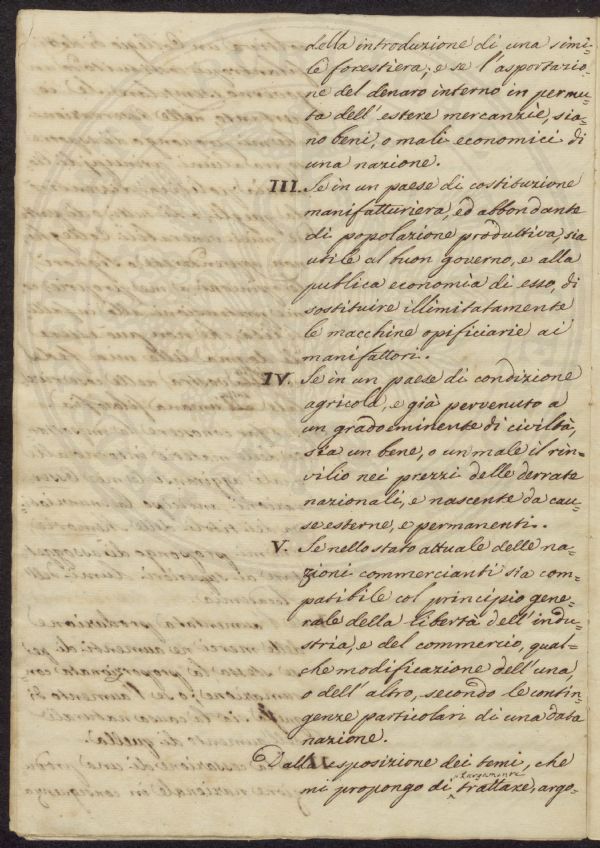 della introduzione di una simi-
le forestiera; e se l'asportazio-
ne del denaro interno in permu-
ta dell'estere mercanzie, sia-
no beni, o mali economici di
una nazione.
III. Se in un paese di costituzione
manifatturiera, ed abbondante
di popolazione produttiva, sia
utile al buon governo, e alla
publica economia di esso, di
sostituire illimitatamente
le macchine opificiarie ai
manifattori.
IV. Se in un paese di condizione
agricola, e già pervenuto a
un grado eminente di civiltà,
sia un bene, o un male il rin-
vilio nei prezzi delle derrate
nazionali, e nascente da cau-
se esterne, e permanenti.
V. Se nello stato attuale delle na-
zioni commercianti sia com-
patibile col principio gene-
rale della libertà dell'indu-
stria, e del commercio, qual-
che modificazione dell'una,
o dell'altro, secondo le contin-
genze particolari di una data
nazione.
Dalla esposizione dei temi, che
largamente
mi propongo di trattare, argo-